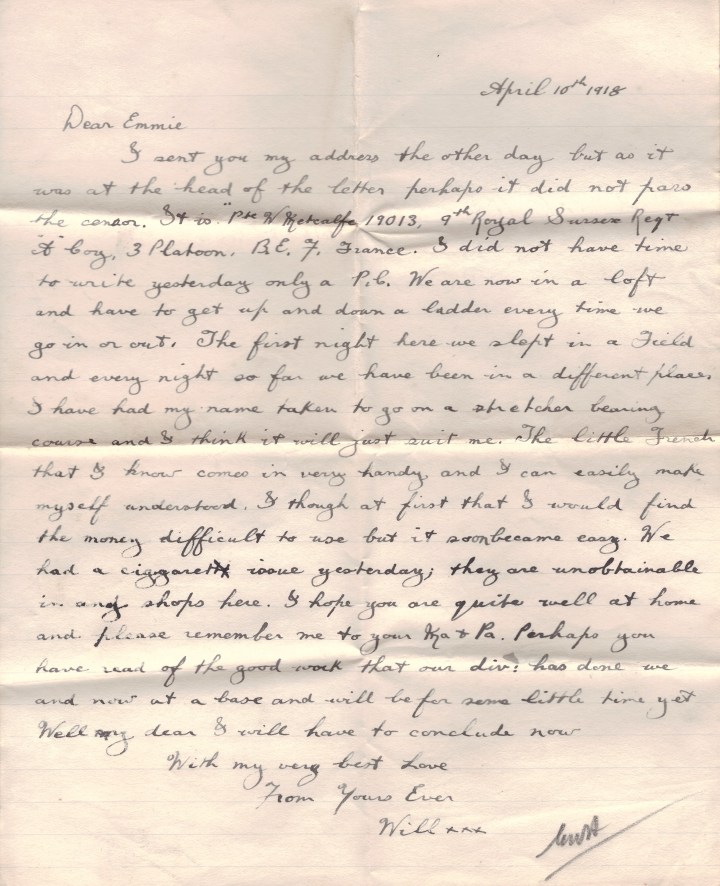 April 10th 1918
Dear Emmie
I sent you my address the other day but as it
was at the head of the letter perhaps it did not pass
the censor. It is "Pte W Metcalfe 19013, 9th Royal Sussex Regt
"A" Coy, 3 Platoon. B.E.F. France. I did not have time
to write yesterday only a P.C. We are now in a loft
and have to get up and down a ladder every time we
go in or out. The first night here we slept in a Field
and every night so far we have been in a different place.
I have had my name taken to go on a stretcher bearing
course and I think it will just suit me. The little French
that I know comes in very handy and I can easily make
myself understood. I though at first that I would find
the money difficult to use but it soon became easy. We
had a ciggarett issue yesterday; they are unobtainable
in any shops here. I hope you are quite well at home
and please remember me to your Ma & Pa. Perhaps you
have read of the good work that our div: has done we
and now at a base and will be for some little time yet
Well my dear I will have to conclude now
With my very best Love
From Yours Ever
Will xxx